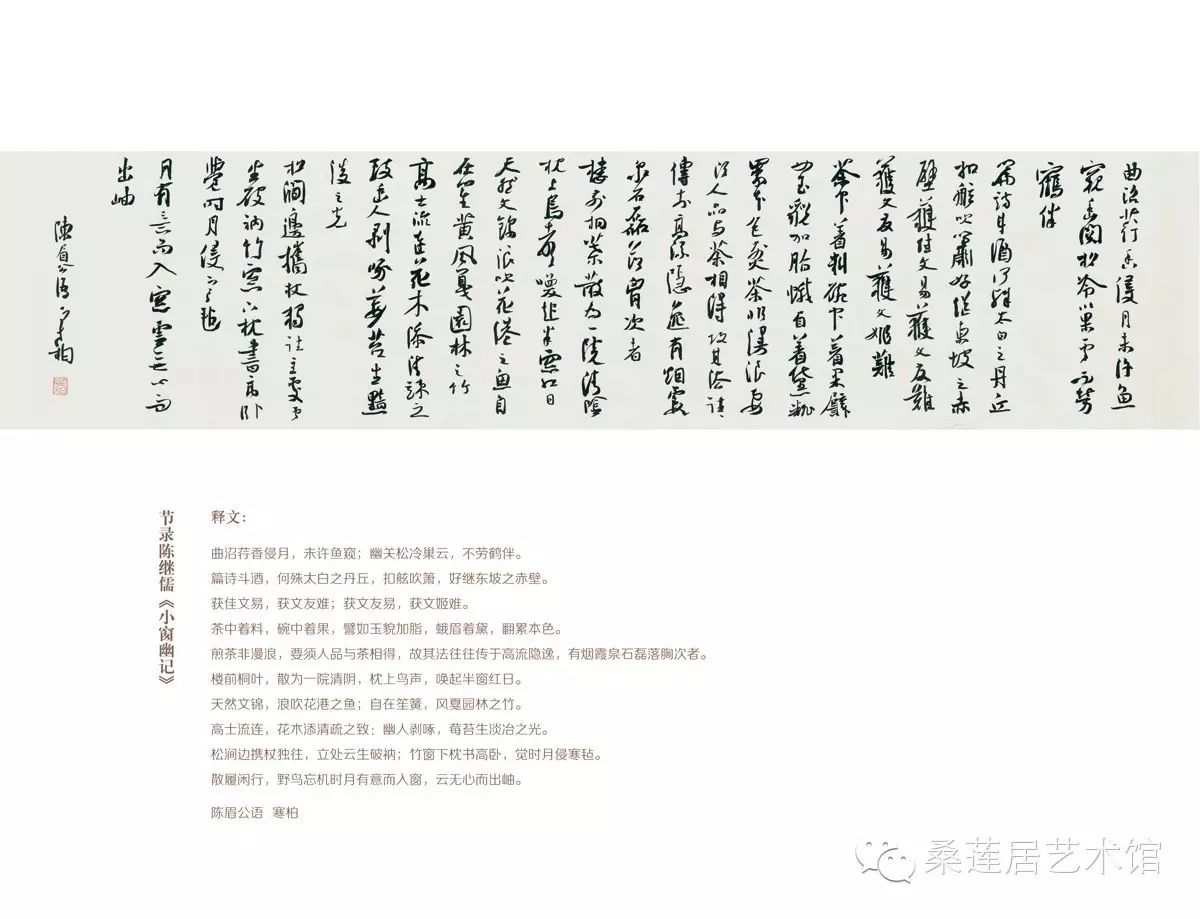 曲沼荇香侵月未許魚
窺幽關松冷巢雲不勞
鶴伴
篇詩斗酒何殊太白之丹丘
扣舷吹簫好繼東坡之赤
壁獲佳文易獲文友難
獲文友易獲文姬難
茶中着料碗中着菓譬
如玉貌加脂蛾眉着黛翻
累本色煎茶非漫浪要
須人品与茶相得故其法往往
傳於高流隱逸有烟霞
泉石磊落胸次者
樓前桐葉散為一院清陰
枕上鳥聲喚起半窗紅日
天然文錦浪吹花港之魚自
在笙簧風戛園林之竹
高士流連花木添清疎之
致幽人剥啄莓苔生
之光
松澗邊攜杖獨往立處雲
生破衲竹窗下枕書高卧
覺時月侵寒氈
月有意而入窗雲無心而
出岫
陳眉公語 寒柏
节录陈继儒《小窗幽记》
释文：
曲沼荇香侵月，未许鱼窥；幽关松冷巢云，不劳鹤伴。
篇诗斗酒，何殊太白之丹丘，扣舷吹箫，好继东坡之赤壁。
获佳文易，获文友难；获文友易，获文姬难。
茶中着料，碗中着果，譬如玉貌加脂，蛾眉着黛，翻累本色。
煎茶非漫浪，要须人品与茶相得，故其法往往传于高流隐逸，有烟霞泉石磊落胸次者。
楼前桐叶，散为一院清阴，枕上鸟声，唤起半窗红日。
天然文锦，浪吹花港之鱼；自在笙簧，风戛园林之竹。
高士流连，花木添清疏之致；幽人剥啄，莓苔生淡冶之光。
松涧边携杖独往，立处云生破衲；竹窗下枕书高卧，觉时月侵寒毡。
散履闲行，野鸟忘机时月有意而入窗，云无心而出岫。
陈眉公语 寒柏
桑莲居艺术馆